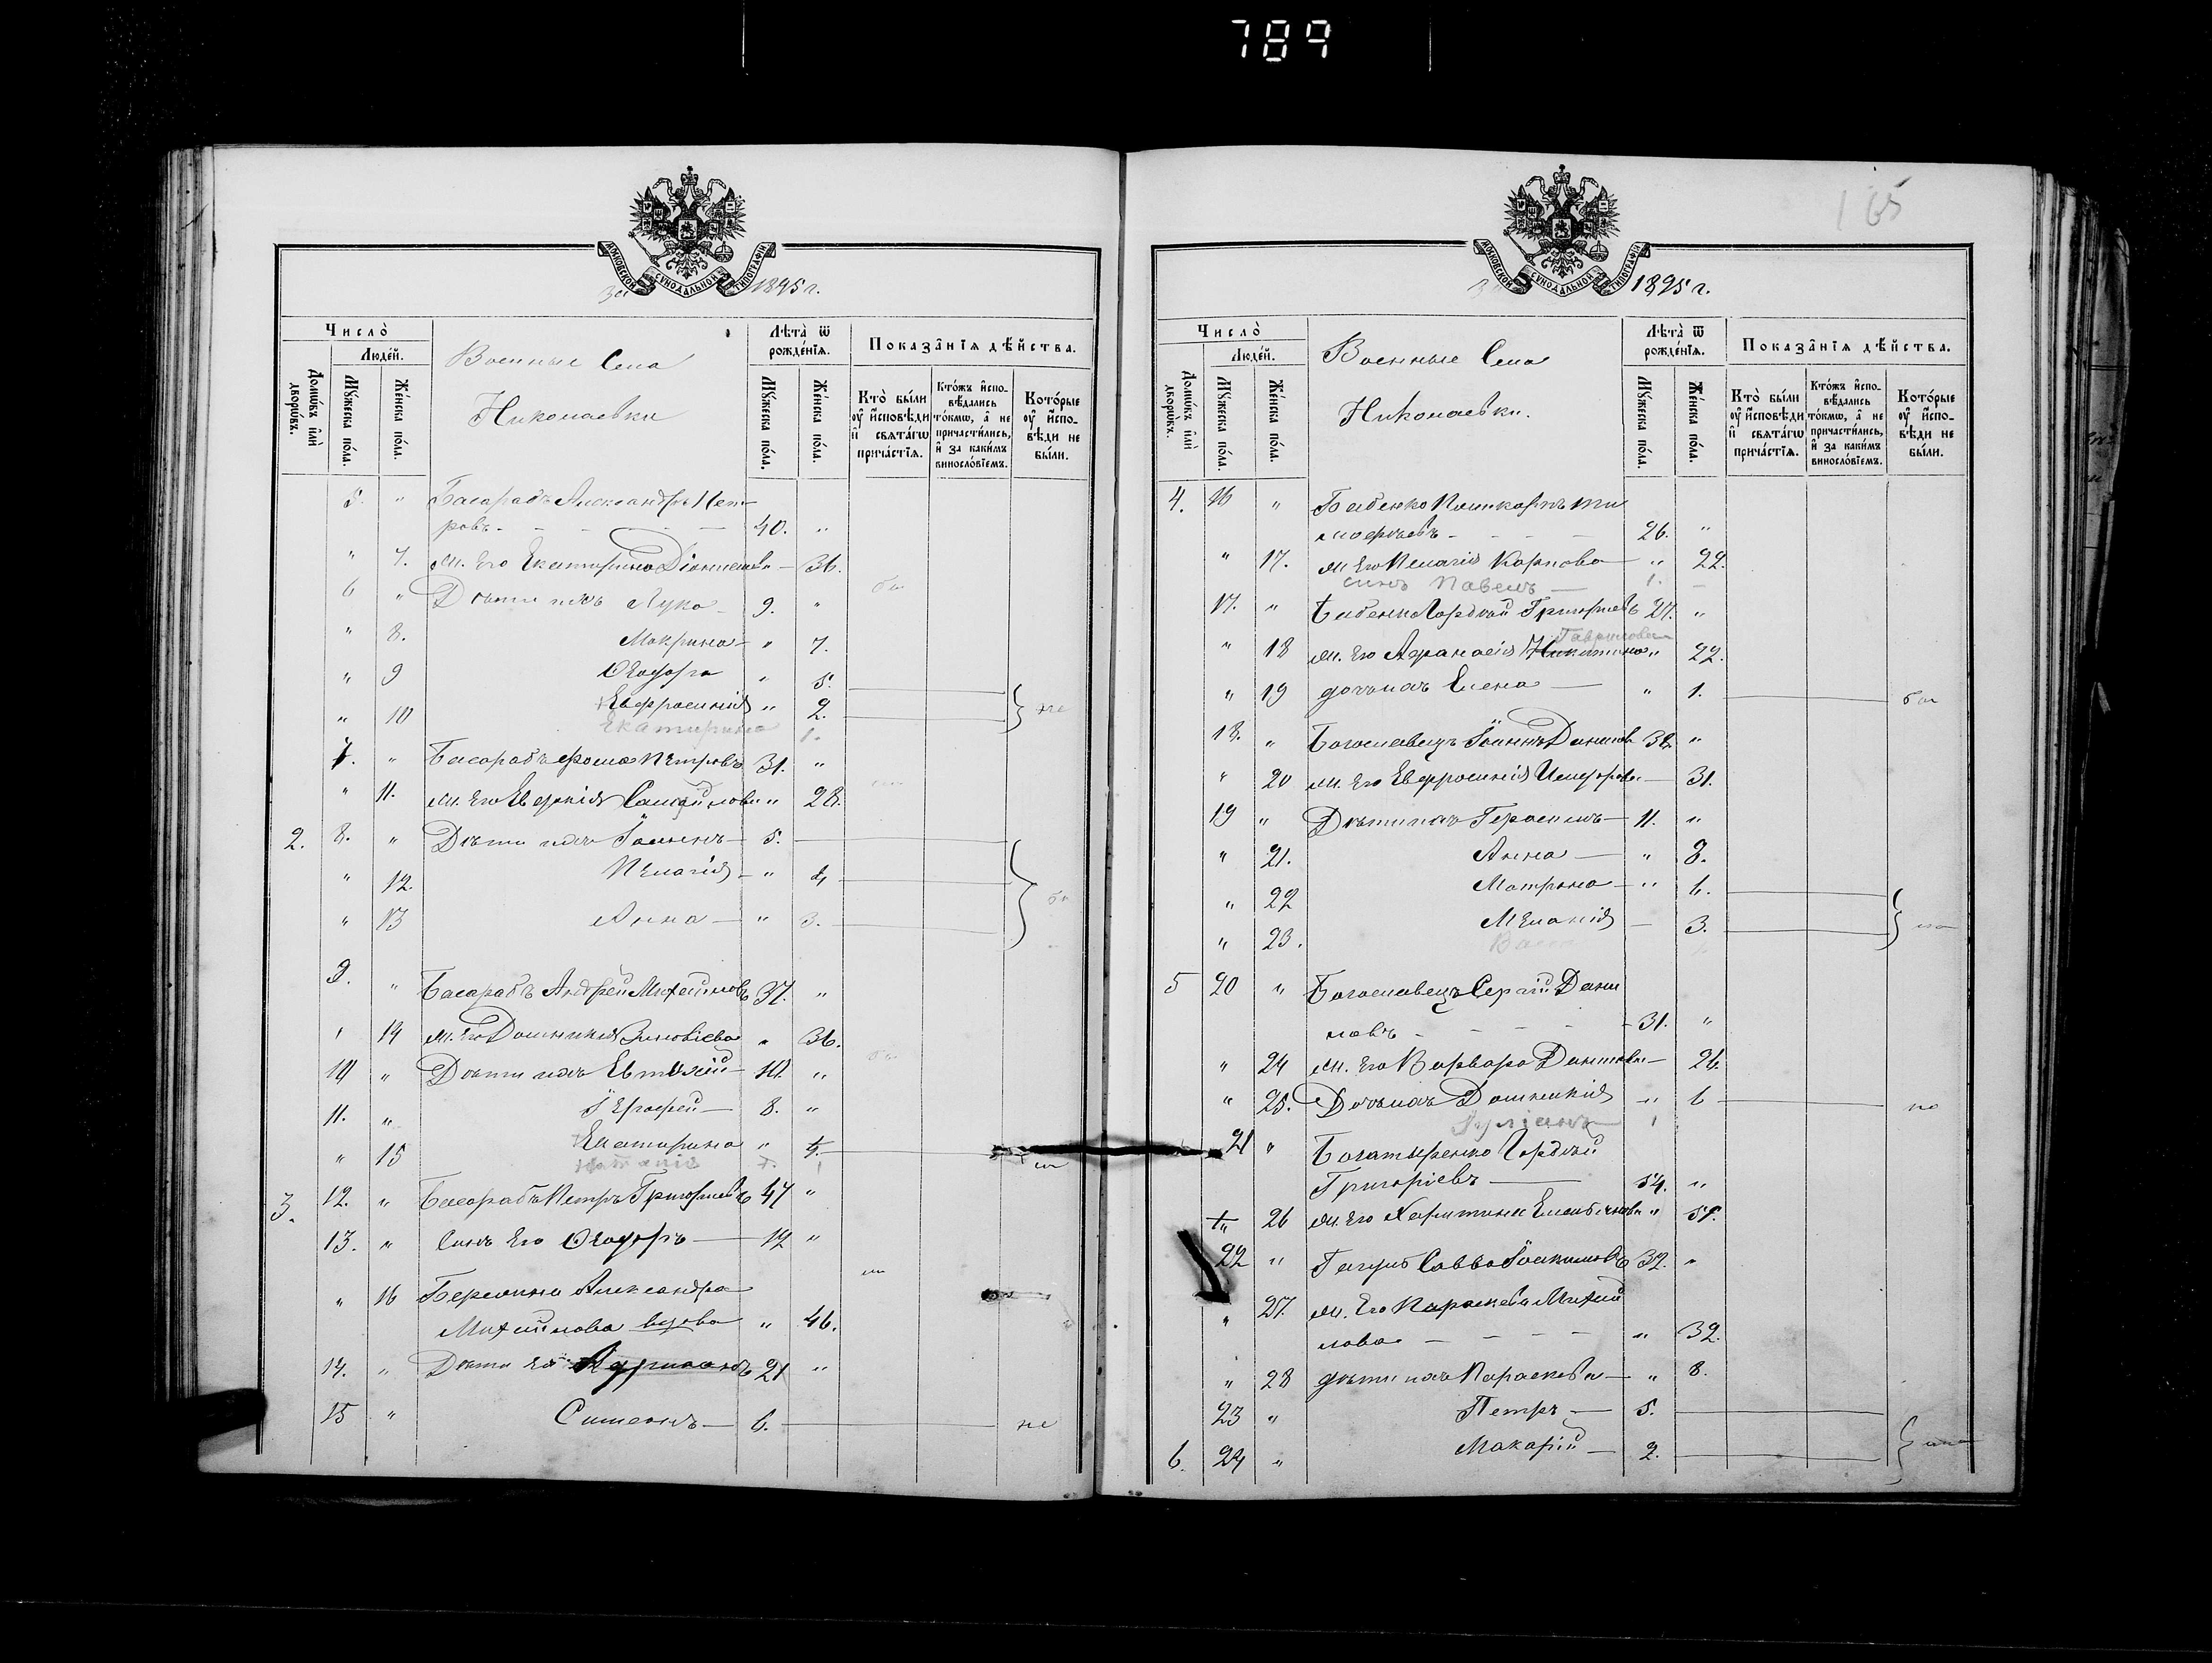 789
165
МОСКОВСКОЙ СѴНОДАЛЬНОЙ ТИПОГРАФІИ
за 1895 г.
Число̀
Люде́й.
Домѡ́въ и҆лѝ дворѡ́въ.
Мꙋ́жеска по́ла.
Же́нска по́ла.
Военные Села
Николаевки
Лѣ́та ѿ рожде́нїѧ.
Мꙋ́жеска по́ла.
Же́нска по́ла.
Показа̑нїѧ дѣ́йства.
Кто̀ бы́ли оу҆ и҆сповѣди и҆ свѧта́гѡ прича́стїѧ.
Кто́жъ и҆спо-
вѣ́дались
то́кмѡ, а҆ не
причасти́лись,
и҆ за каки́мъ
винослóвїемъ.
Кото́рые оу҆ и҆спо-
вѣди не бы́ли.
5. " Басарабъ Александръ Пет-
ровъ - - - - 40. "
" 7. Ж. Его Екатерина Діонисіева - 36.
6 " Дѣти ихъ Лука - 9. "
" 8. Макрина - " 7.
" 9 Ѳеодора " 5.
" 10 Евфросинія " 2.
Екатерина 1.
7. " Басарабъ Фома Петровъ 31. "
" 11. Ж. Его Евфимія Самойлова " 28.
2. 8. " Дѣти ихъ Іоаннъ - 5.
" 12. Пелагія - " 4
" 13 Анна - " 3.
9. " Басарабъ Андрей Михайловъ 37. "
" 14 Ж. Его Домникія Зиновіева " 36.
10 " Дѣти ихъ Евтихій - 10. "
11. " Іерофей - 8. "
" 15 Екатерина " 4.
3. 12. " Басарабъ Петръ Григорьевъ 47 "
13. " Сынъ Его Ѳеодоръ - 12 "
" 16 Александра
Михайлова вдова " 46.
14. " Дѣти ея Адріанъ 21 "
15 " Симеонъ - 6. не
1895 г.
Число̀
Люде́й.
Домѡ́въ и҆лѝ дворѡ́въ.
Мꙋ́жеска по́ла.
Же́нска по́ла.
Военные Села
Николаевки.
Лѣ́та ѿ рожде́нїѧ.
Мꙋ́жеска по́ла.
Же́нска по́ла.
Показа̑нїѧ дѣ́йства.
Кто̀ бы́ли оу҆ и҆сповѣди и҆ свѧта́гѡ прича́стїѧ.
Кто́жъ и҆спо-
вѣ́дались
то́кмѡ, а҆ не
причасти́лись,
и҆ за каки́мъ
винослóвїемъ.
Кото́рые оу҆ и҆спо-
вѣди не бы́ли.
4. 16 " Бабенко Поликарпъ Ти
моѳеевъ - - - - 26. "
" 17. Ж. Его Пелагія Карпова - " 22.
сынъ Павелъ - 1.
17. " Бабенко Гордѣй Григорьевъ 27. "
Гаврилова
" 18 Ж. Его Афанасія Никитина " 22.
" 19 дочь ихъ Елена - " 1.
18. " Богославецъ Іоаннъ Даниловъ 32. "
" 20 Ж. Его Евфросинія - 31.
19 " Дѣти ихъ Герасимъ - 11. "
" 21. Анна - " 8.
" 22 Матрона - " 6.
" 23. Меланія - 3.
5 20 " Богославецъ Сергій Дани
ловъ - - - - 31. "
" 24 Ж. Его Варвара - 26.
" 25. Дочь ихъ Домникія " 6
21 " Богатыренко Гордѣй
Григоріевъ - 54. "
" 26 Ж. Его Харитина " 51.
22 " Савва Іоакимовъ 32. "
" 27. Ж. Его Параскева Михай
лова - - - - " 32.
" 28 дѣти ихъ Параскева - " 8.
23 " Петръ - 5.
6. 24 " Макарій - 2.